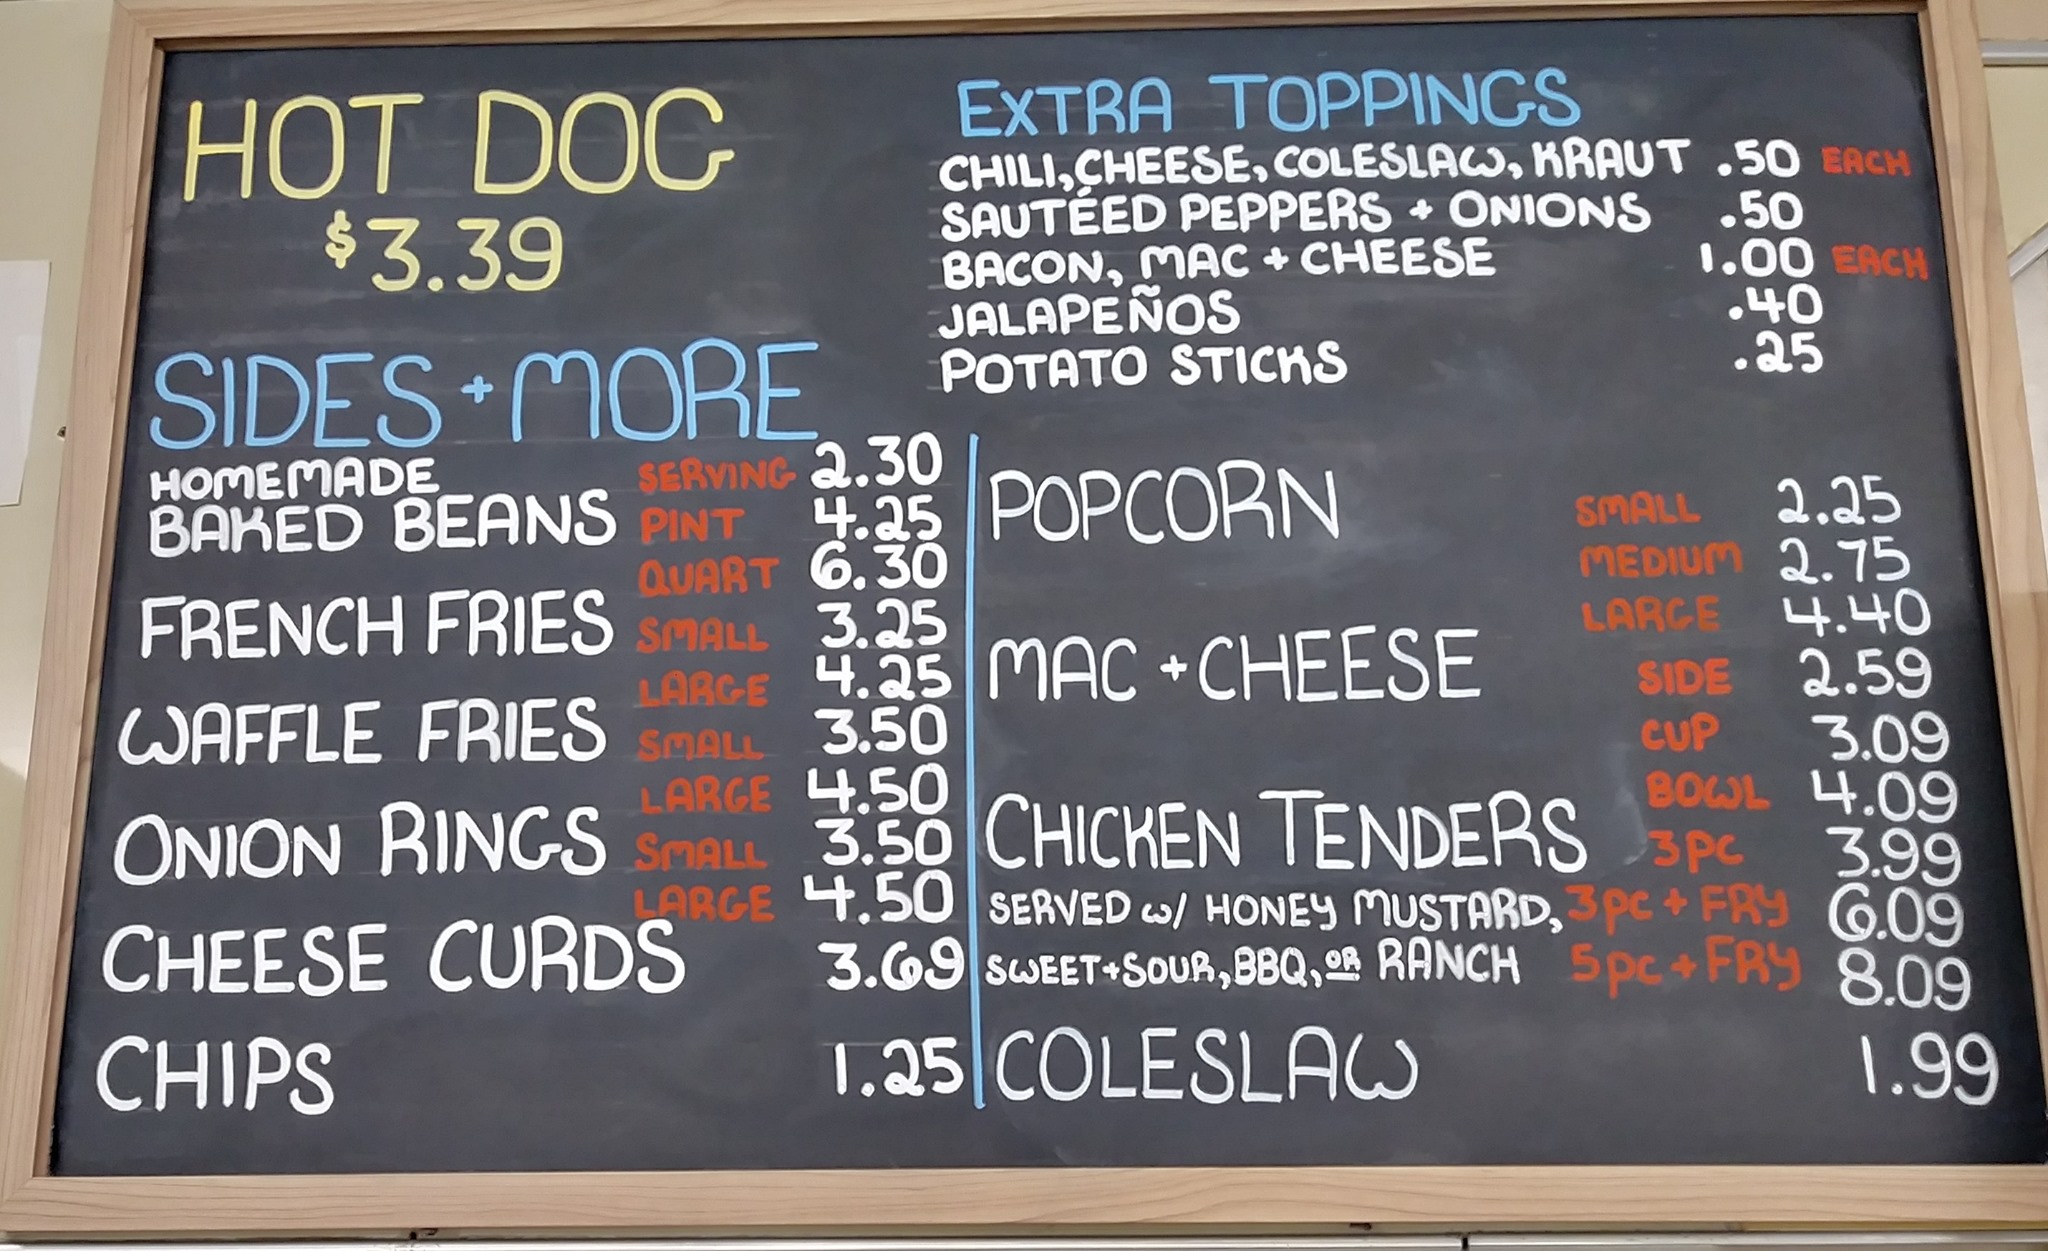 HOT DOG
$3.39
EXTRA TOPPINGS
CHILI, CHEESE, COLESLAW, KRAUT .50 EACH
SAUTÉED PEPPERS + ONIONS .50
BACON, MAC + CHEESE 1.00 EACH
JALAPEÑOS .40
POTATO STICKS .25
SIDES + MORE
HOMEMADE
BAKED BEANS
SERVING 2.30
PINT 4.25
QUART 6.30
FRENCH FRIES
SMALL 3.25
LARGE 4.25
WAFFLE FRIES
SMALL 3.50
LARGE 4.50
ONION RINGS
SMALL 3.50
LARGE 4.50
CHEESE CURDS 3.69
CHIPS 1.25
POPCORN
SMALL 2.25
MEDIUM 2.75
LARGE 4.40
MAC + CHEESE
SIDE 2.59
CUP 3.09
BOWL 4.09
CHICKEN TENDERS 3PC 3.99
SERVED W/ HONEY MUSTARD, 3PC + FRY 6.09
SWEET + SOUR, BBQ, OR RANCH 5PC + FRY 8.09
COLESLAW 1.99